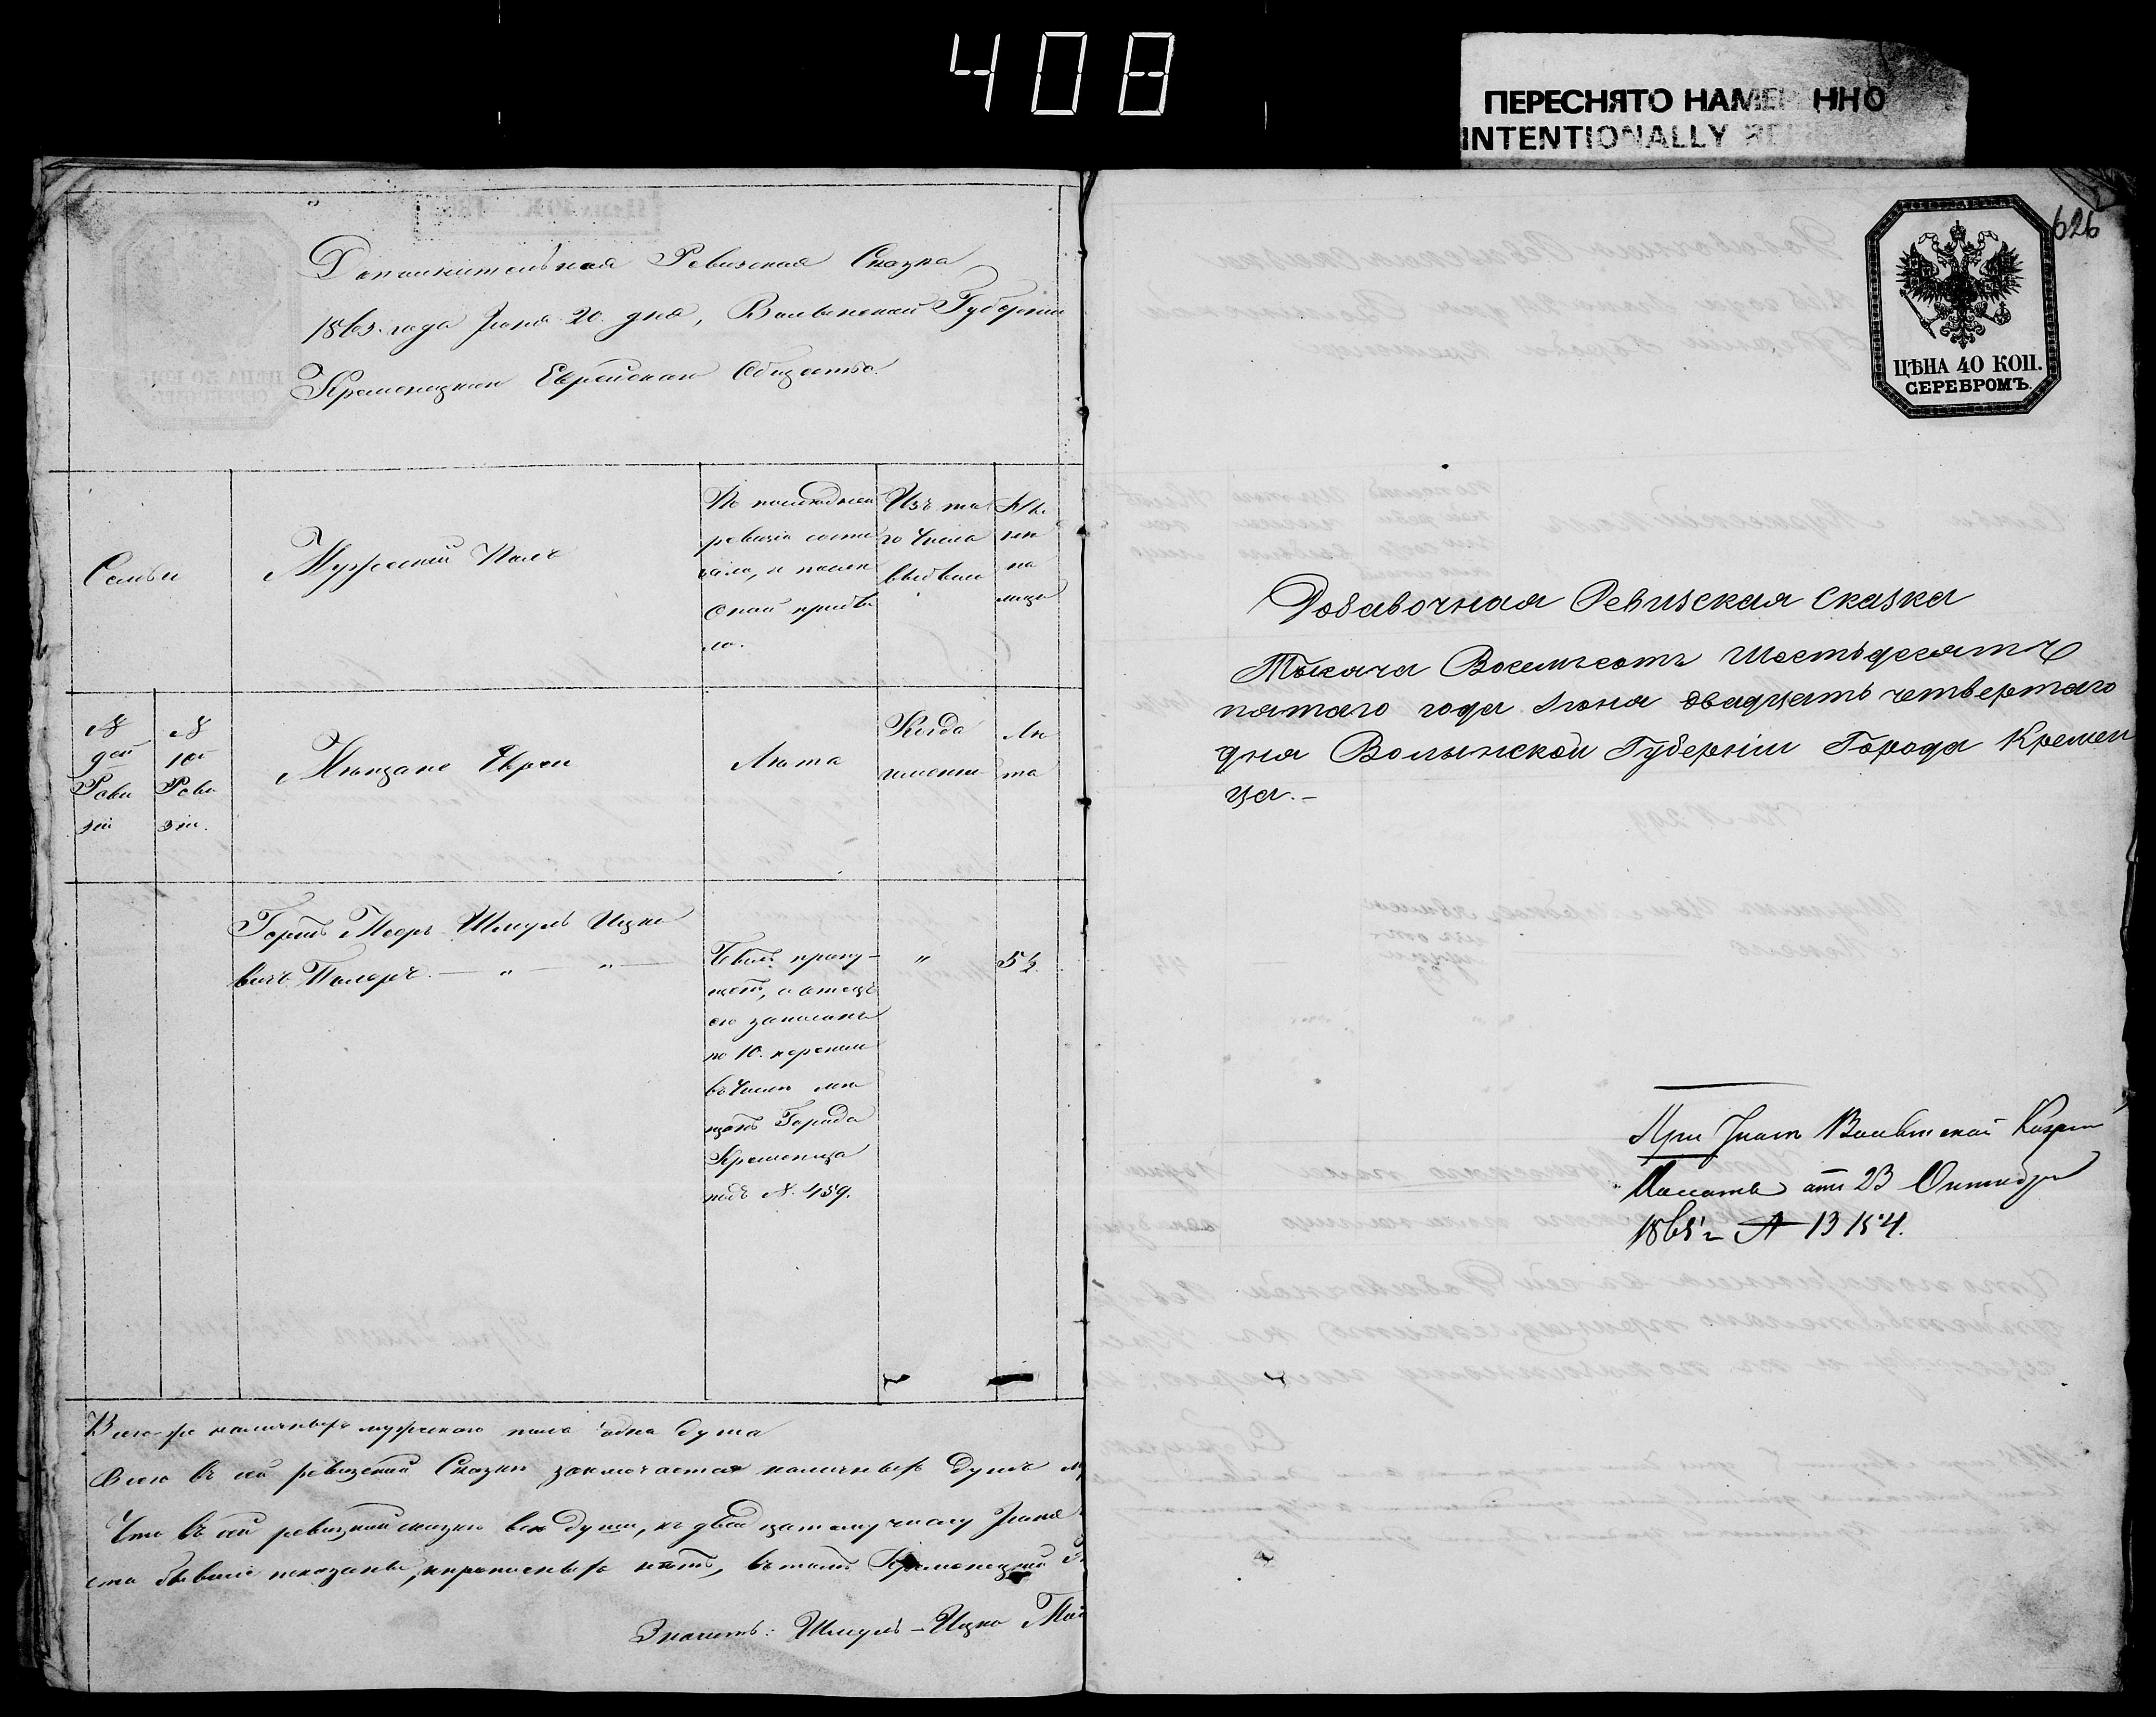 408
ПЕРЕСНЯТО НАМЕ ННО
INTENTIONALLY
Дополнительная Ревизская Сказка
1865 года Іюня 20 дня, Волынской Губерніи
Кременецкаго Еврейскаго Общества.
Семьи
Мужескій Полъ
По последней
ревизіи состо
яло, и после
оной прибы
ло.
Изъ то
го числа
выбыло
Ны
не
на
лицо
№
9ой
Реви
зіи
№
10й
Реви
зіи.
Мещане Евреи
Лета
Когда
именно
Ле
та
Мееръ Шмуль Ицко
вичъ — „ — „ —
Былъ пропу-
щенъ, а отецъ
его записанъ
по 10. переписи
въ числе ме
щанъ Города
Кременца
подъ №. 459.
„
5½
Всего же наличныхъ мужескаго пола одна душа
Всего въ сей ревизской Сказке заключается наличныхъ душъ
Что въ сей ревизской сказке все души, къ двадцатому числу Іюня
бывшіе показаны, и прописныхъ нетъ, въ томъ Кременецкій
Значитъ: Шмуль-Ицко
626
ЦѢНА 40 КОП.
СЕРЕБРОМЪ.
Добавочная Ревизская Сказка
Тысяча Восемьсотъ Шестьдесятъ
пятаго года Іюня двадцать четвертаго
дня Волынской Губерніи Города Кремен
ца.-
При Указе Волынской Казен
Палаты отъ 23 Октября
1865 г № 13154.